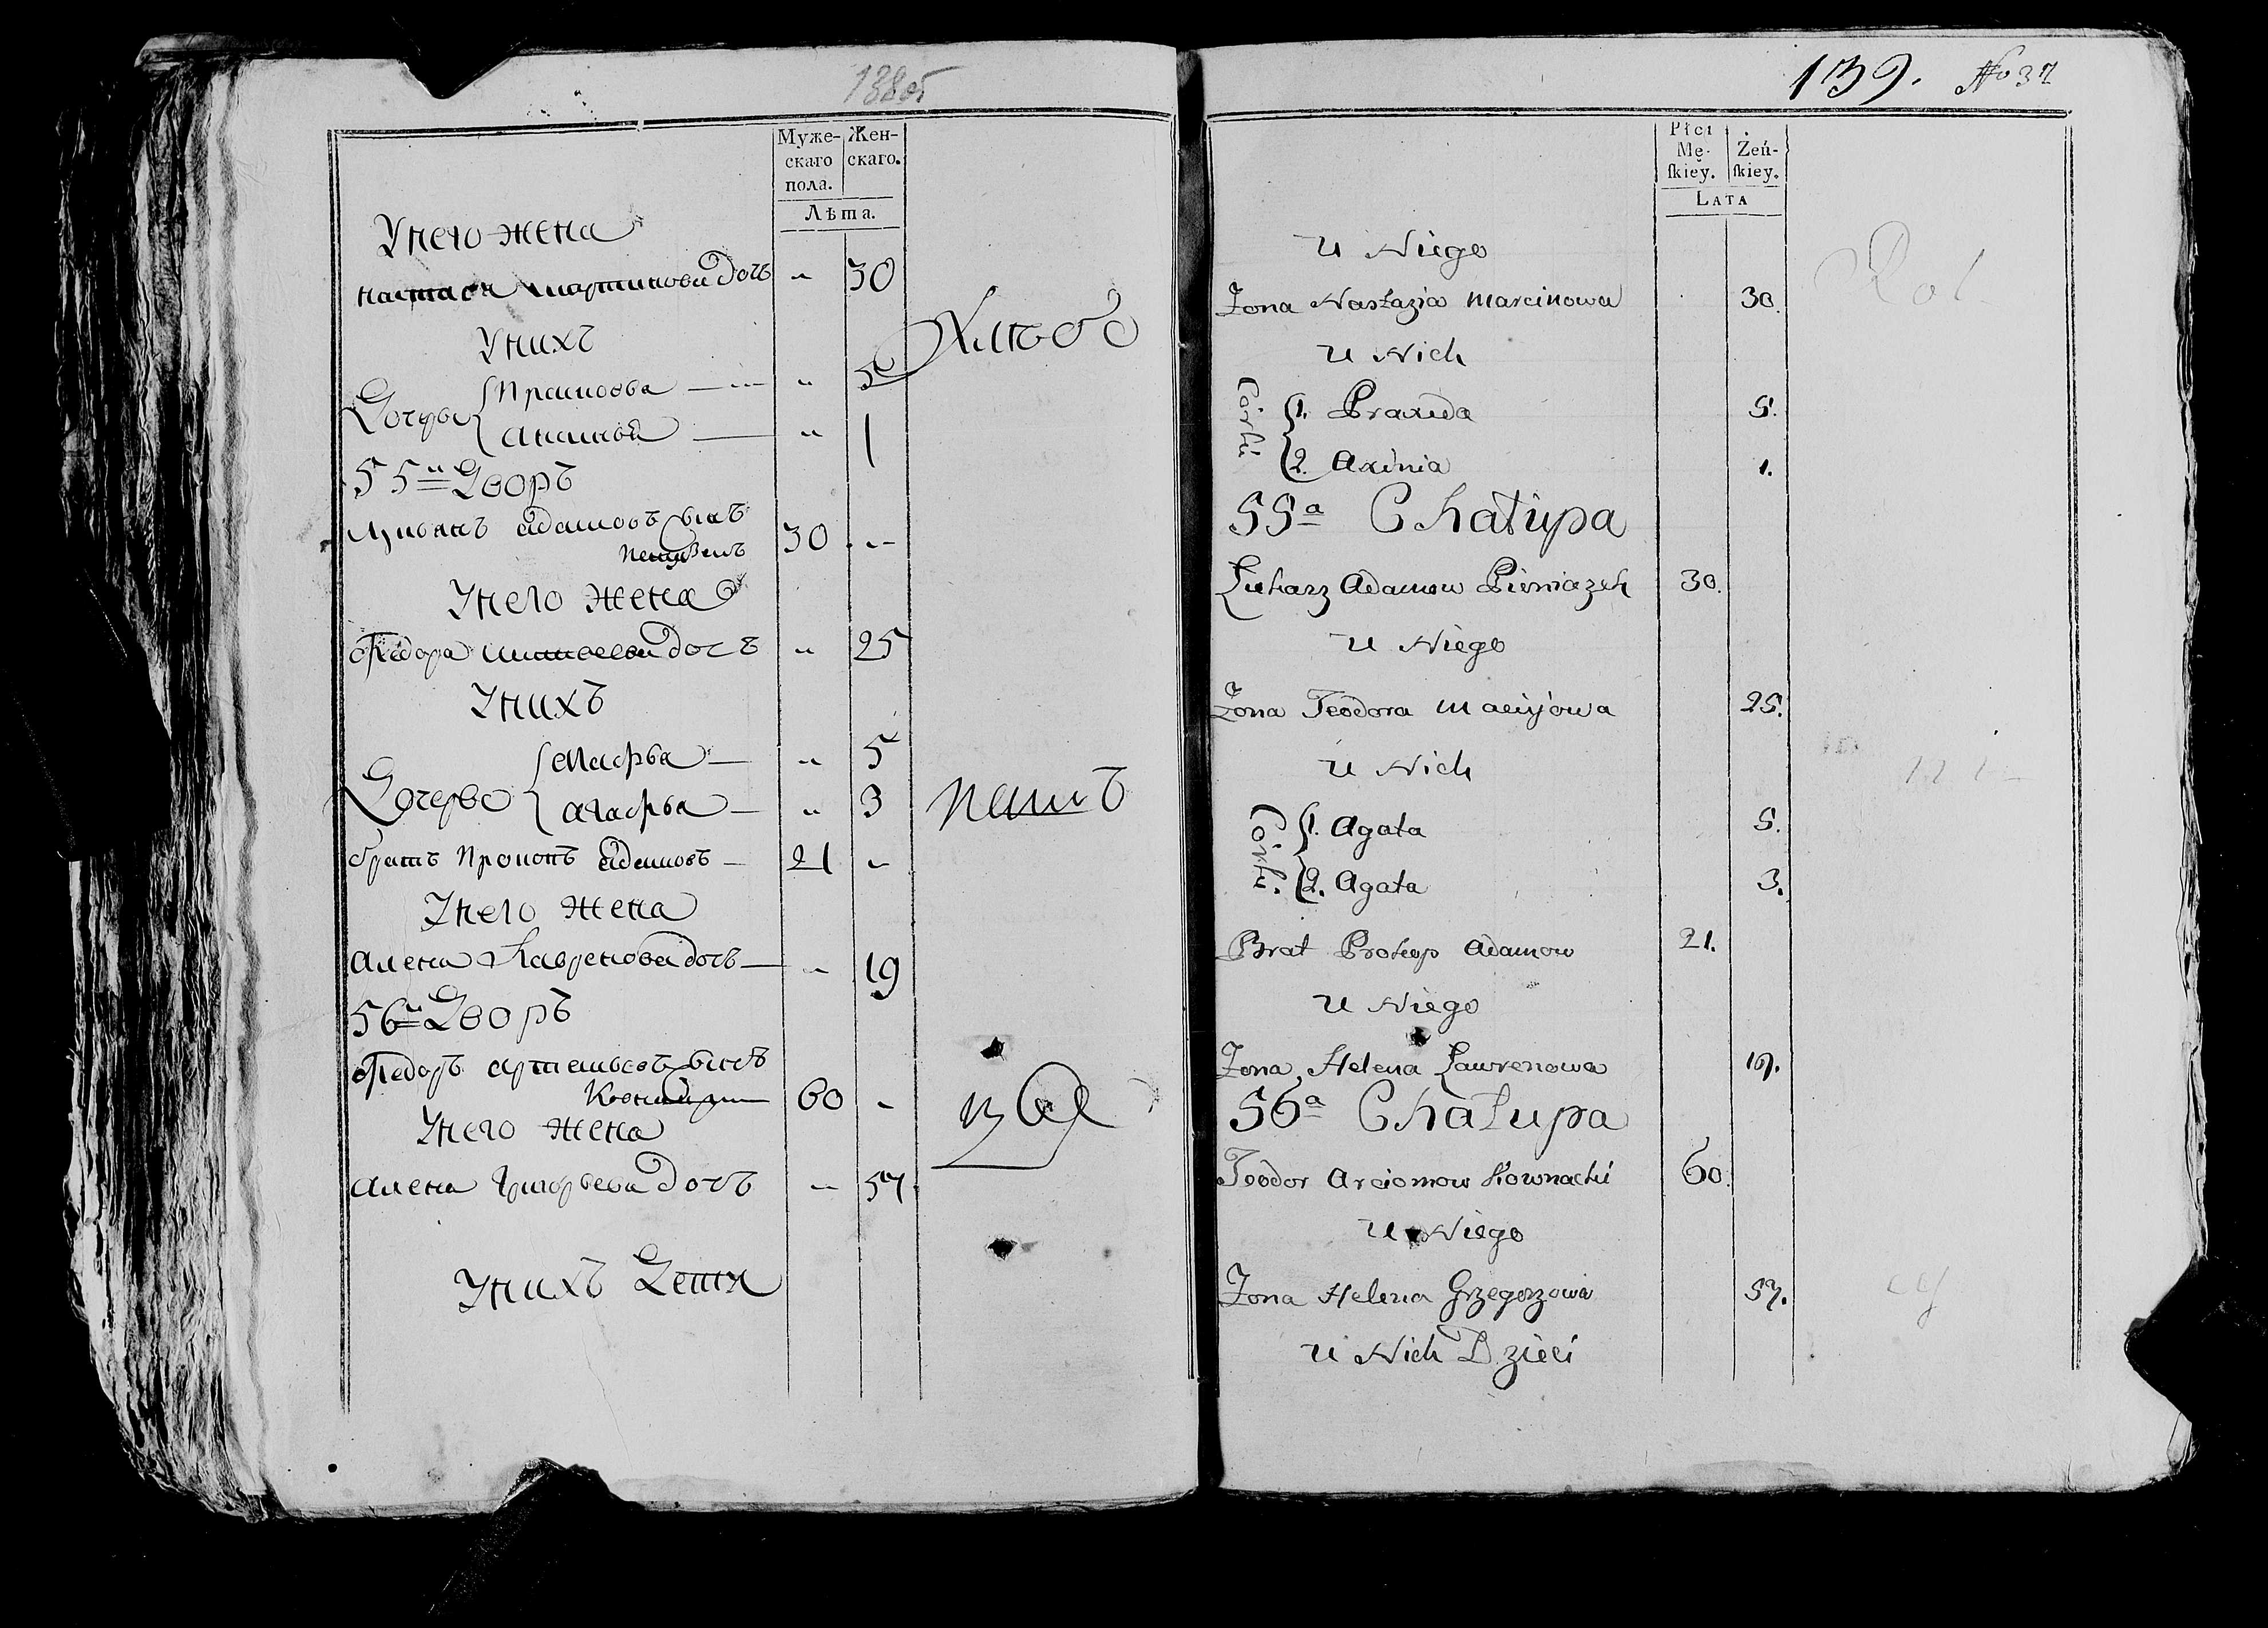 138об
Муже-
скаго
пола.
Жен-
скаго.
Лѣта.
У него жена
Настася Мартинова дочь „ 30
У нихъ
Дочери
Праксѣва „ 5
Аксинья „ 1
Хлѣбо
55й Дворъ
Лукьянъ Адамовъ сынъ 30 „
У него жена
Федора дочь „ 25
У нихъ
Дочери
Агафья „ 5
Агафья „ 3
паш
братъ Прокопъ Адамовъ 21 „
У него жена
Алена Лавренова дочь „ 19
56й Дворъ
Федоръ Артемьевъ сынъ
60 „
У него жена
Алена Григорьева дочь „ 57
У нихъ дети
139. No 37
Płci
Mę-
skiey.
Żeń-
skiey.
LATA
u Niego
Żona Nastazia Marcinowa 30.
u Nich
Corki
1. Praxeda 5.
2. Axinia 1.
55a Chałupa
Łukasz Adamow Pieniazek 30.
u Niego
Żona Teodora Maciyowa 25.
u Nich
Corki.
1. Agata 5.
2. Agata 3.
Brat Prokop Adamow 21.
u Niego
Żona Helena Ławrenowa 19.
56a Chałupa
Teodor Arciomow Kownacki 60.
u Niego
Żona Helena Grzegorzowa 57.
u Nich Dzieci